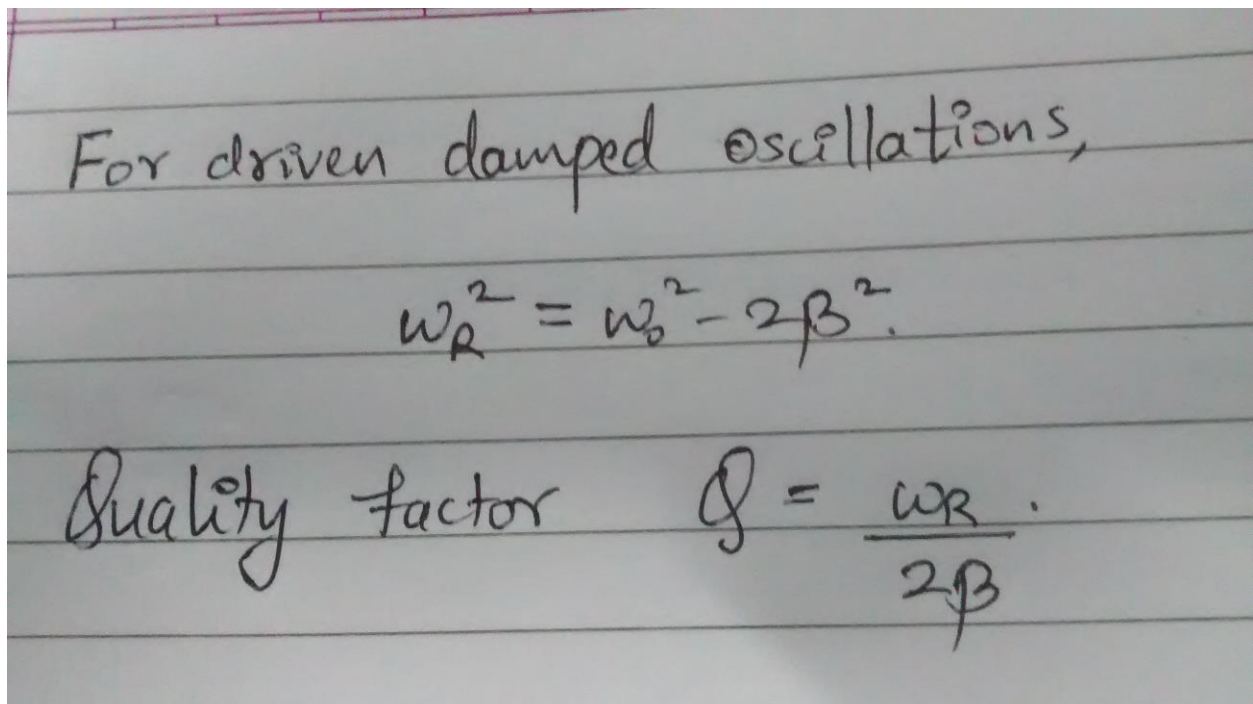 For driven damped oscillations,
ω_R² = ω₀² - 2β².
Quality factor Q = ω_R / 2β .